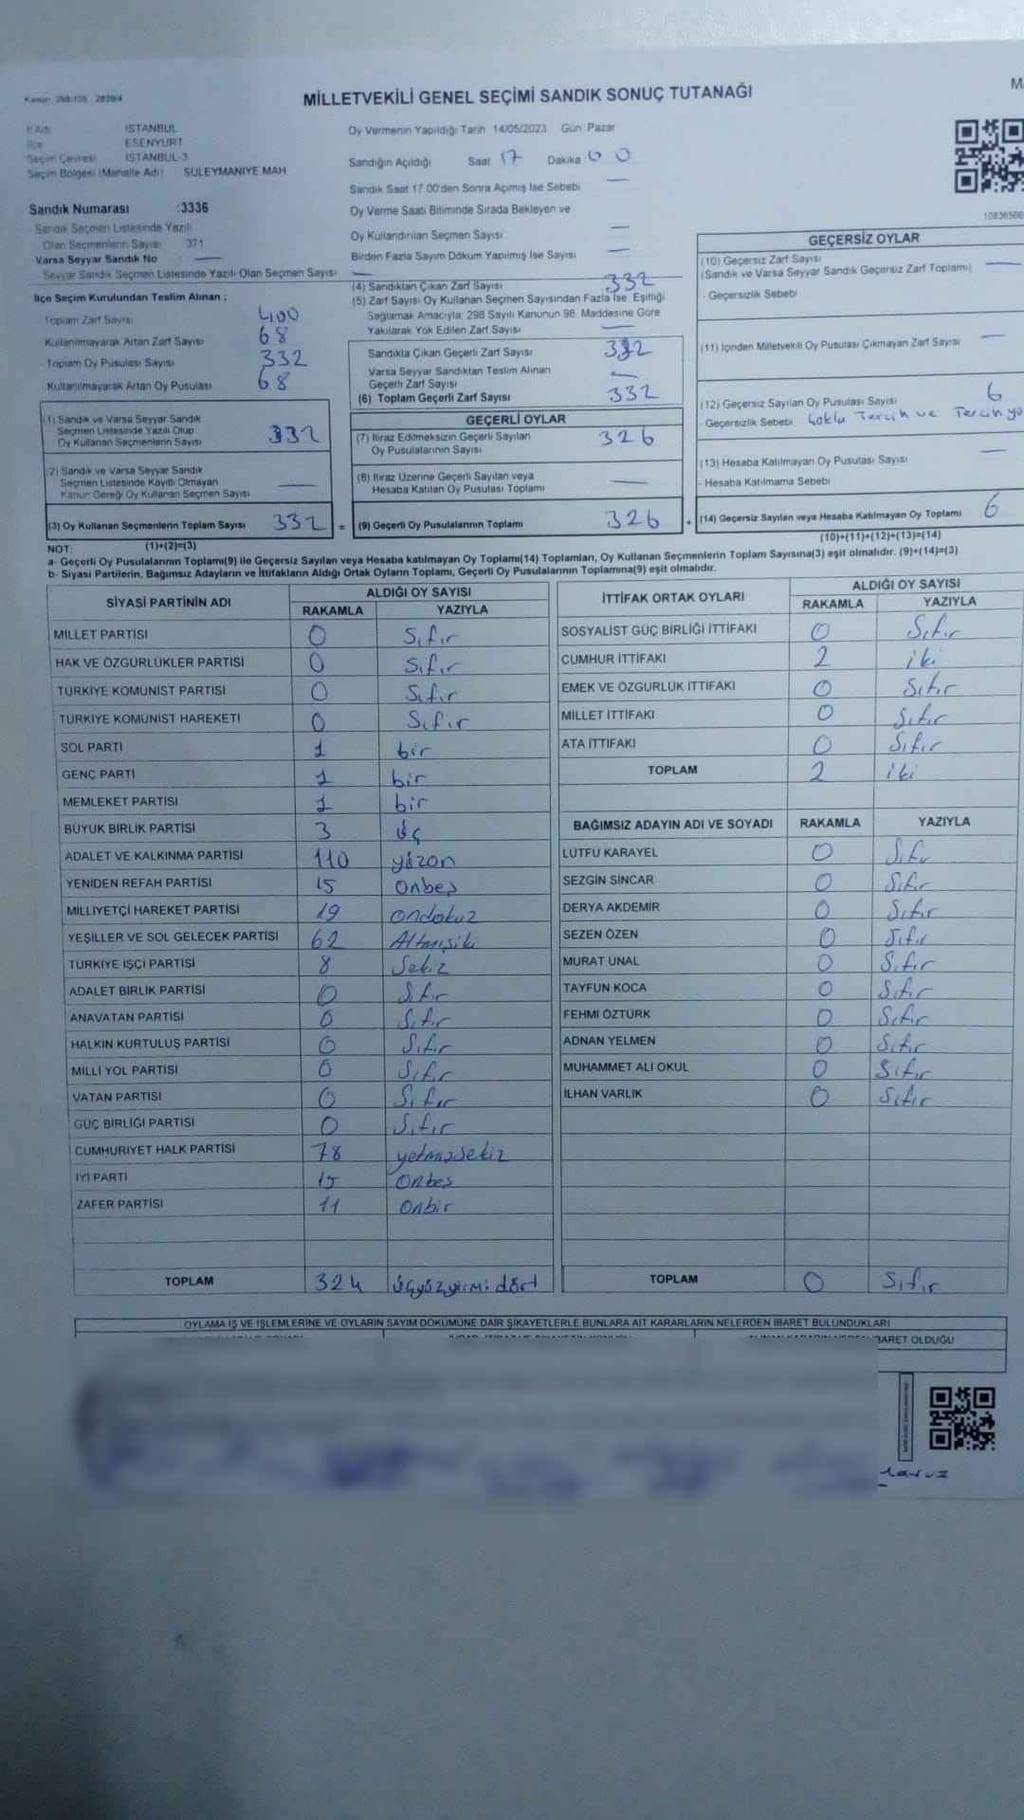 MİLLETVEKİLİ GENEL SEÇİMİ SANDIK SONUÇ TUTANAĞI
M
İSTANBUL
ESENYURT
Seçim Çevresi İSTANBUL-3
Seçim Bölgesi (Mahalle Adı) SÜLEYMANİYE MAH
Sandık Numarası :3336
Sandık Seçmen Listesinde Yazılı
Olan Seçmenlerin Sayısı 371
Varsa Seyyar Sandık No —
Seyyar Sandık Seçmen Listesinde Yazılı Olan Seçmen Sayısı —
İlçe Seçim Kurulundan Teslim Alınan ;
Toplam Zarf Sayısı 400
Kullanılmayarak Artan Zarf Sayısı 68
Toplam Oy Pusulası Sayısı 332
Kullanılmayarak Artan Oy Pusulası 68
(1) Sandık ve Varsa Seyyar Sandık
Seçmen Listesinde Yazılı Olup
Oy Kullanan Seçmenlerin Sayısı 332
(2) Sandık ve Varsa Seyyar Sandık
Seçmen Listesinde Kayıtlı Olmayan
Kanun Gereği Oy Kullanan Seçmen Sayısı —
(3) Oy Kullanan Seçmenlerin Toplam Sayısı 332 =
(1)+(2)=(3)
Oy Vermenin Yapıldığı Tarih 14/05/2023 Gün Pazar
Sandığın Açıldığı Saat 17 Dakika 00
Sandık Saat 17.00'den Sonra Açımış İse Sebebi —
Oy Verme Saati Bitiminde Sırada Bekleyen ve
Oy Kullandırılan Seçmen Sayısı —
Birden Fazla Sayım Döküm Yapılmış İse Sayısı —
(4) Sandıktan Çıkan Zarf Sayısı 332
(5) Zarf Sayısı Oy Kullanan Seçmen Sayısından Fazla İse, Eşitliği
Sağlamak Amacıyla; 298 Sayılı Kanunun 98. Maddesine Göre
Yakılarak Yok Edilen Zarf Sayısı —
Sandıkta Çıkan Geçerli Zarf Sayısı 332
Varsa Seyyar Sandıktan Teslim Alınan
Geçerli Zarf Sayısı —
(6) Toplam Geçerli Zarf Sayısı 332
GEÇERLİ OYLAR
(7) İtiraz Edilmeksizin Geçerli Sayılan
Oy Pusulalarının Sayısı 326
(8) İtiraz Üzerine Geçerli Sayılan veya
Hesaba Katılan Oy Pusulası Toplamı —
(9) Geçerli Oy Pusulalarının Toplamı 326 +
GEÇERSİZ OYLAR
(10) Geçersiz Zarf Sayısı
(Sandık ve Varsa Seyyar Sandık Geçersiz Zarf Toplamı) —
- Geçersizlik Sebebi
(11) İçinden Milletvekili Oy Pusulası Çıkmayan Zarf Sayısı —
(12) Geçersiz Sayılan Oy Pusulası Sayısı 6
- Geçersizlik Sebebi Çoklu Tercih ve Tercih yo
(13) Hesaba Katılmayan Oy Pusulası Sayısı —
- Hesaba Katılmama Sebebi
(14) Geçersiz Sayılan veya Hesaba Katılmayan Oy Toplamı 6
(10)+(11)+(12)+(13)=(14)
NOT:
a- Geçerli Oy Pusulalarının Toplamı(9) ile Geçersiz Sayılan veya Hesaba katılmayan Oy Toplamı(14) Toplamları, Oy Kullanan Seçmenlerin Toplam Sayısına(3) eşit olmalıdır. (9)+(14)=(3)
b- Siyasi Partilerin, Bağımsız Adayların ve İttifakların Aldığı Ortak Oyların Toplamı, Geçerli Oy Pusulalarının Toplamına(9) eşit olmalıdır.
SİYASİ PARTİNİN ADI ALDIĞI OY SAYISI
RAKAMLA YAZIYLA
MİLLET PARTİSİ 0 Sıfır
HAK VE ÖZGÜRLÜKLER PARTİSİ 0 Sıfır
TÜRKİYE KOMÜNİST PARTİSİ 0 Sıfır
TÜRKİYE KOMÜNİST HAREKETİ 0 Sıfır
SOL PARTİ 1 bir
GENÇ PARTİ 1 bir
MEMLEKET PARTİSİ 1 bir
BÜYÜK BİRLİK PARTİSİ 3 üç
ADALET VE KALKINMA PARTİSİ 110 yüzon
YENİDEN REFAH PARTİSİ 15 Onbeş
MİLLİYETÇİ HAREKET PARTİSİ 19 ondokuz
YEŞİLLER VE SOL GELECEK PARTİSİ 62 Altmışiki
TÜRKİYE İŞÇİ PARTİSİ 8 Sekiz
ADALET BİRLİK PARTİSİ 0 Sıfır
ANAVATAN PARTİSİ 0 Sıfır
HALKIN KURTULUŞ PARTİSİ 0 Sıfır
MİLLİ YOL PARTİSİ 0 Sıfır
VATAN PARTİSİ 0 Sıfır
GÜÇ BİRLİĞİ PARTİSİ 0 Sıfır
CUMHURİYET HALK PARTİSİ 78 yetmişsekiz
İYİ PARTİ 15 Onbeş
ZAFER PARTİSİ 11 Onbir
TOPLAM 324 üçyüzyirmi dört
İTTİFAK ORTAK OYLARI ALDIĞI OY SAYISI
RAKAMLA YAZIYLA
SOSYALİST GÜÇ BİRLİĞİ İTTİFAKI 0 Sıfır
CUMHUR İTTİFAKI 2 iki
EMEK VE ÖZGÜRLÜK İTTİFAKI 0 Sıfır
MİLLET İTTİFAKI 0 Sıfır
ATA İTTİFAKI 0 Sıfır
TOPLAM 2 iki
BAĞIMSIZ ADAYIN ADI VE SOYADI RAKAMLA YAZIYLA
LÜTFÜ KARAYEL 0 Sıfır
SEZGİN SİNCAR 0 Sıfır
DERYA AKDEMİR 0 Sıfır
SEZEN ÖZEN 0 Sıfır
MURAT ÜNAL 0 Sıfır
TAYFUN KOCA 0 Sıfır
FEHMİ ÖZTÜRK 0 Sıfır
ADNAN YELMEN 0 Sıfır
MUHAMMET ALİ OKUL 0 Sıfır
İLHAN VARLIK 0 Sıfır
TOPLAM 0 Sıfır
OYLAMA İŞ VE İŞLEMLERİNE VE OYLARIN SAYIM DÖKÜMÜNE DAİR ŞİKAYETLERLE BUNLARA AİT KARARLARIN NELERDEN İBARET BULUNDUKLARI
BARET OLDUĞU